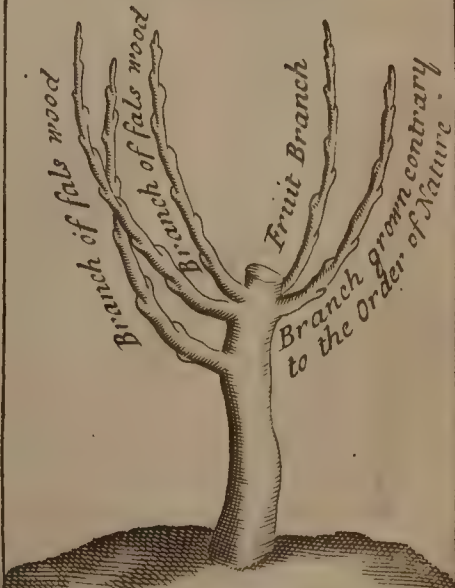 Branch of fals wood
Branch of fals wood
Fruit Branch
Branch grown contrary
to the Order of Nature.